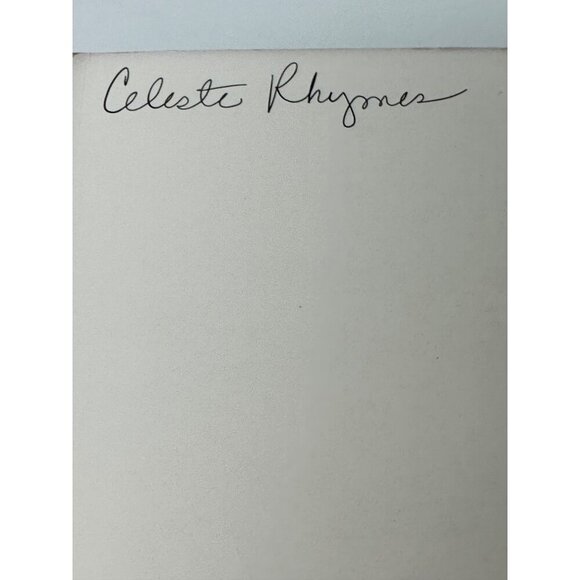 Celeste Rhymes